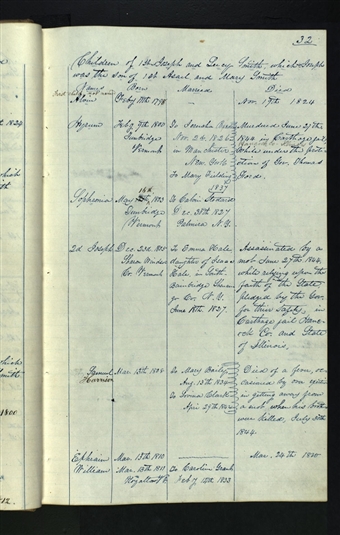 32
Children of 1st Joseph and Lucy Smith which Joseph
was the son of 1st Asael and Mary Smith
Names Born Married Died
Alvin Feb'y 11th 1798 Nov. 19th 1824
Hyrum Feb'y 9th 1800 To Jerusha Murdered June 27th
Tunbridge Nov. 2d 1826 1844 in Carthage jail
Vermont in Manchester while under the protec
New York tion of Gov. Thomas
To Mary Fielding Forde.
1837
Sophronia May 1803 To Calvin Stodard
Tunbridge Dec. 30th 1827
Vermont Palmyra N.Y.
2d Joseph Dec. 23d 1805 To Emma Hale Assassinated by a
Sharon Windsor daughter of Isaac mob June 27th 1844,
Co. Vermont Hale in South while relying upon the
Bainbridge faith of the State,
Co. N.Y. pledged by the Gov.
June 18th 1827. for their safety, in
Carthage jail Hanc-
ock Co. and State
of Illinois.
Samuel Mar. 13th 1808 To Mary Baily Died of a fever, oc-
Harrison Aug. 13th 1834 casioned by
To Levina Clark in getting away from
April 29th 1841 a mob when his broth
were killed, July 30th
1844.
Ephraim Mar. 13th 1810 Mar. 24th 1810
William Mar. 13th 1811 To Caroline Grant
Royalton Vt Feb'y 14th 1833